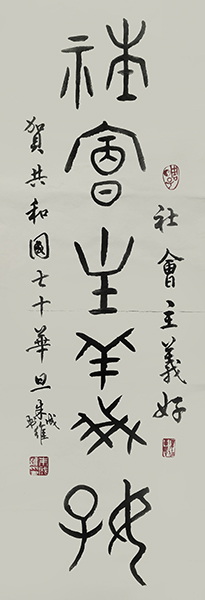 社會主義好
社會主義好
賀共和國七十華旦
朱維